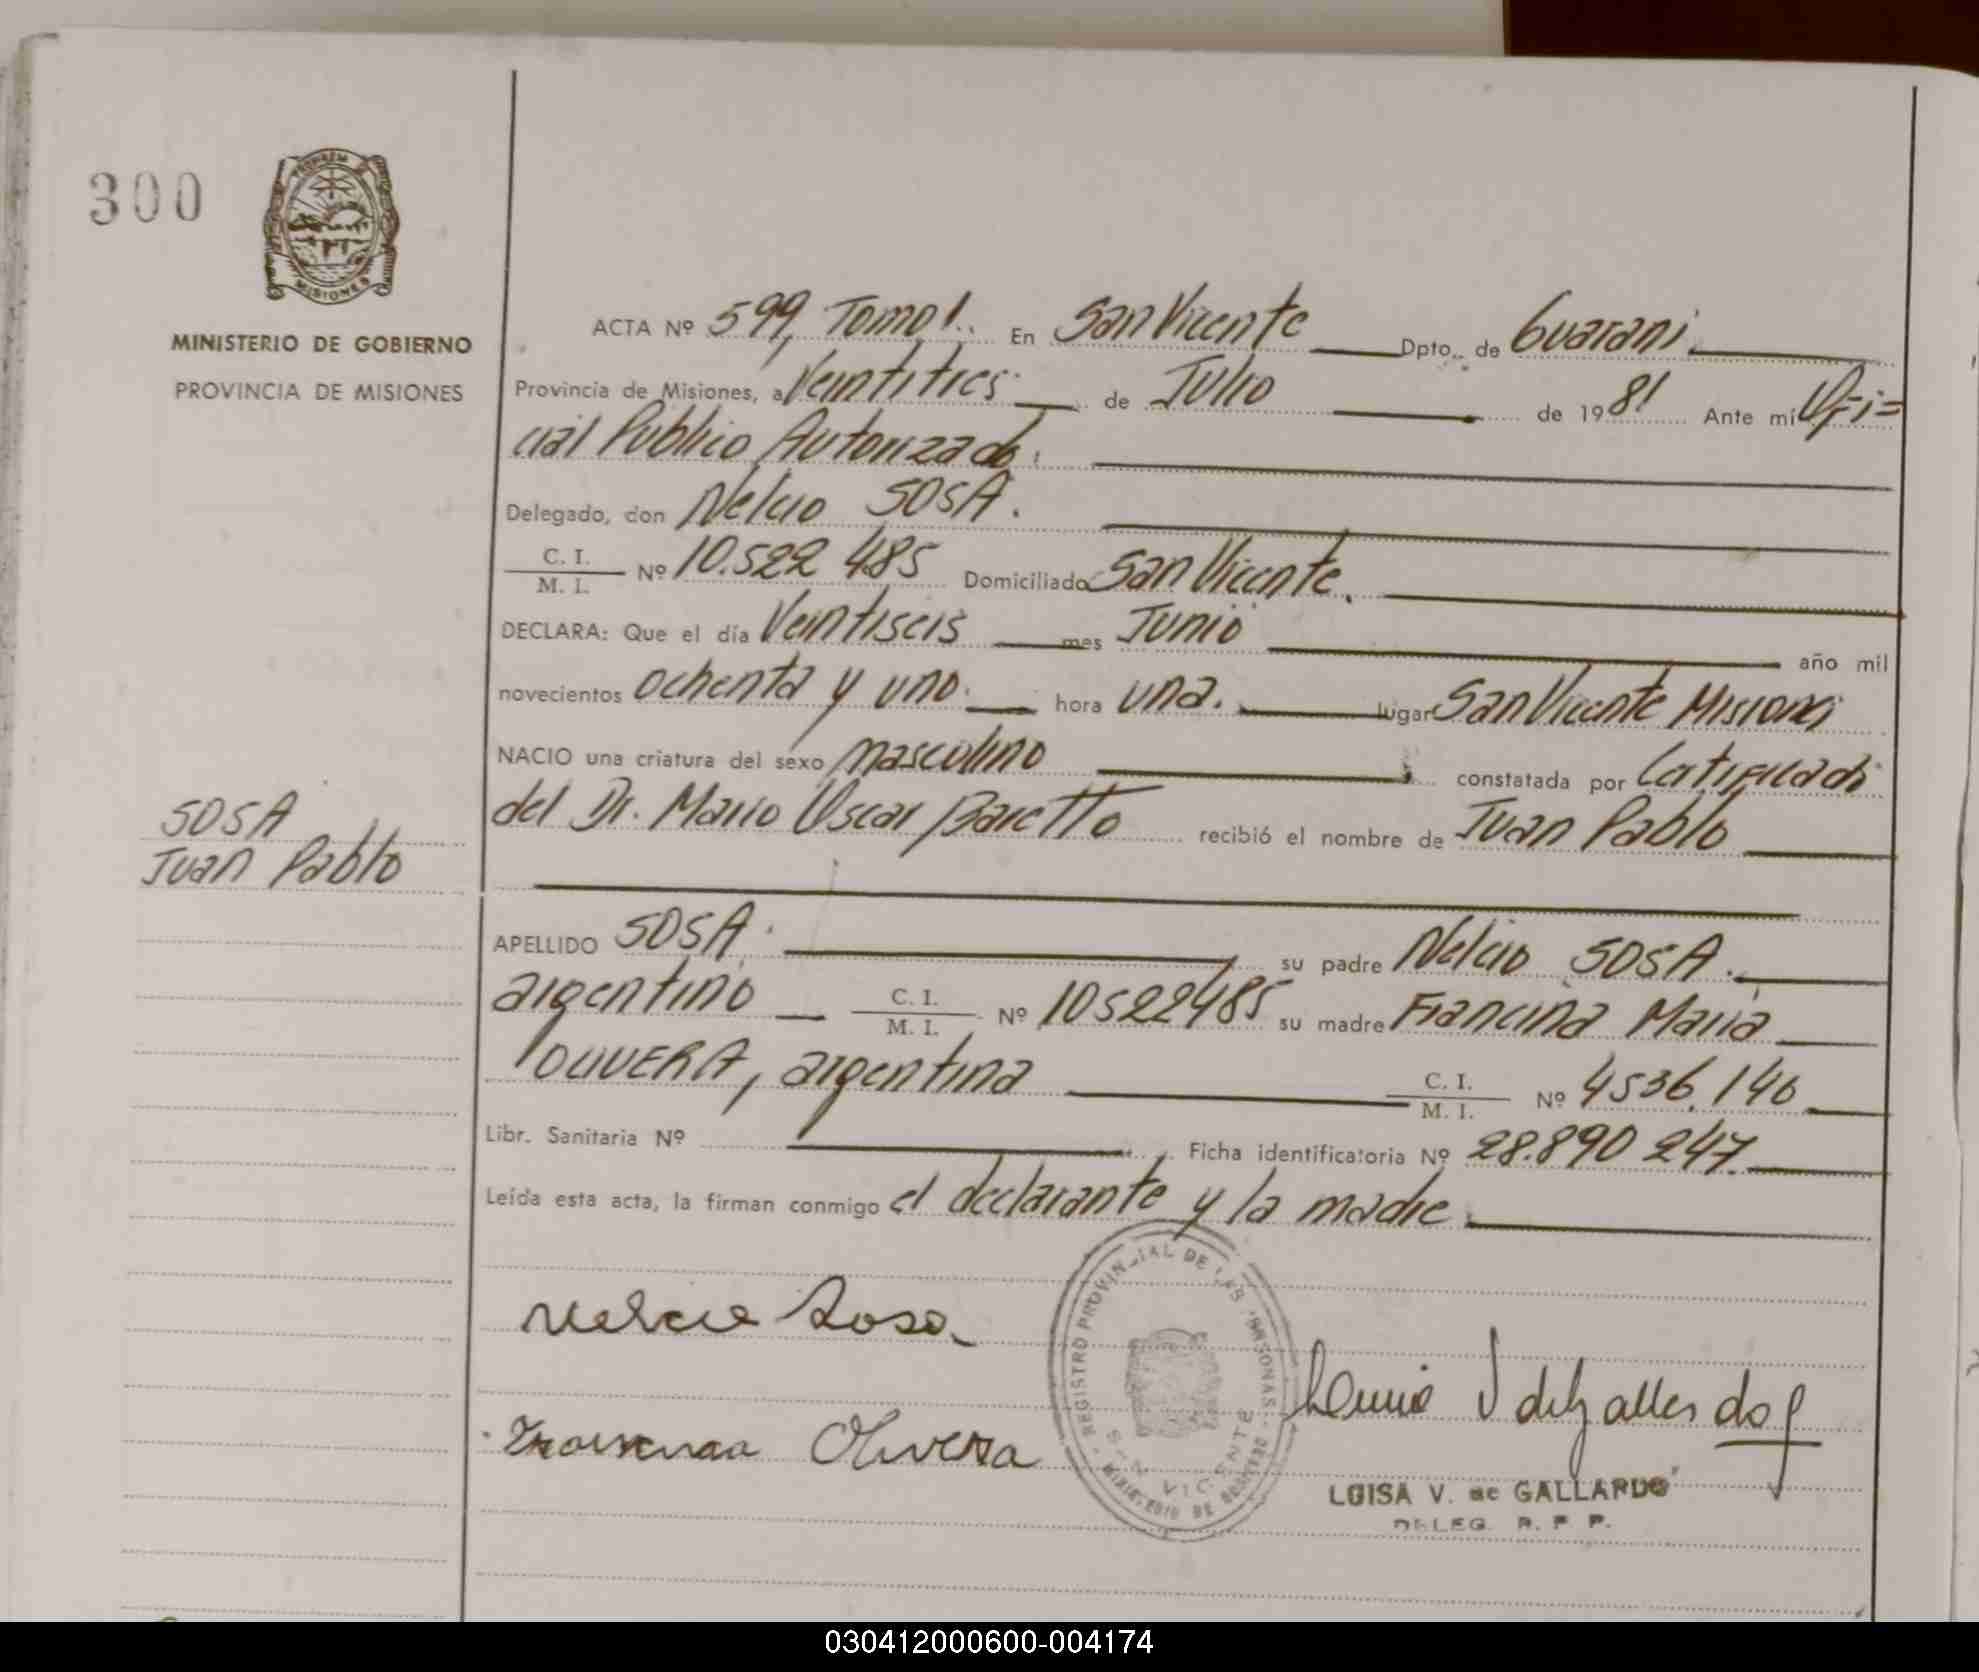 300
PROVINCIA DE
MISIONES
MINISTERIO DE GOBIERNO
PROVINCIA DE MISIONES
SOSA
Juan Pablo
ACTA Nº 599, Tomo I.. En San Vicente Dpto. de Guarani
Provincia de Misiones, a Veintitres de Julio de 1981 Ante mí Ofi=
cial Publico Autorizado.
Delegado, don Nelcio SOSA.
C. I. / M. I. Nº 10.522 485 Domiciliado San Vicente.
DECLARA: Que el día Veintiseis mes Junio año mil
novecientos ochenta y uno. hora una. lugar San Vicente Misiones
NACIO una criatura del sexo masculino constatada por Certificado
del Dr. Mario Oscar Baretto recibió el nombre de Juan Pablo
APELLIDO SOSA. su padre Nelcio SOSA.
argentino C. I. / M. I. Nº 10522485 su madre Francina Maria
OLIVERA, argentina C. I. / M. I. Nº 4536.146
Libr. Sanitaria Nº Ficha identificatoria Nº 28.890 247.
Leída esta acta, la firman conmigo el declarante y la madre
Nelcio Sosa
Olivera
REGISTRO PROVINCIAL DE LAS PERSONAS
SAN VICENTE
MINISTERIO DE GOBIERNO
LUISA V. de GALLARDO
DELEG. R. P. P.
030412000600-004174